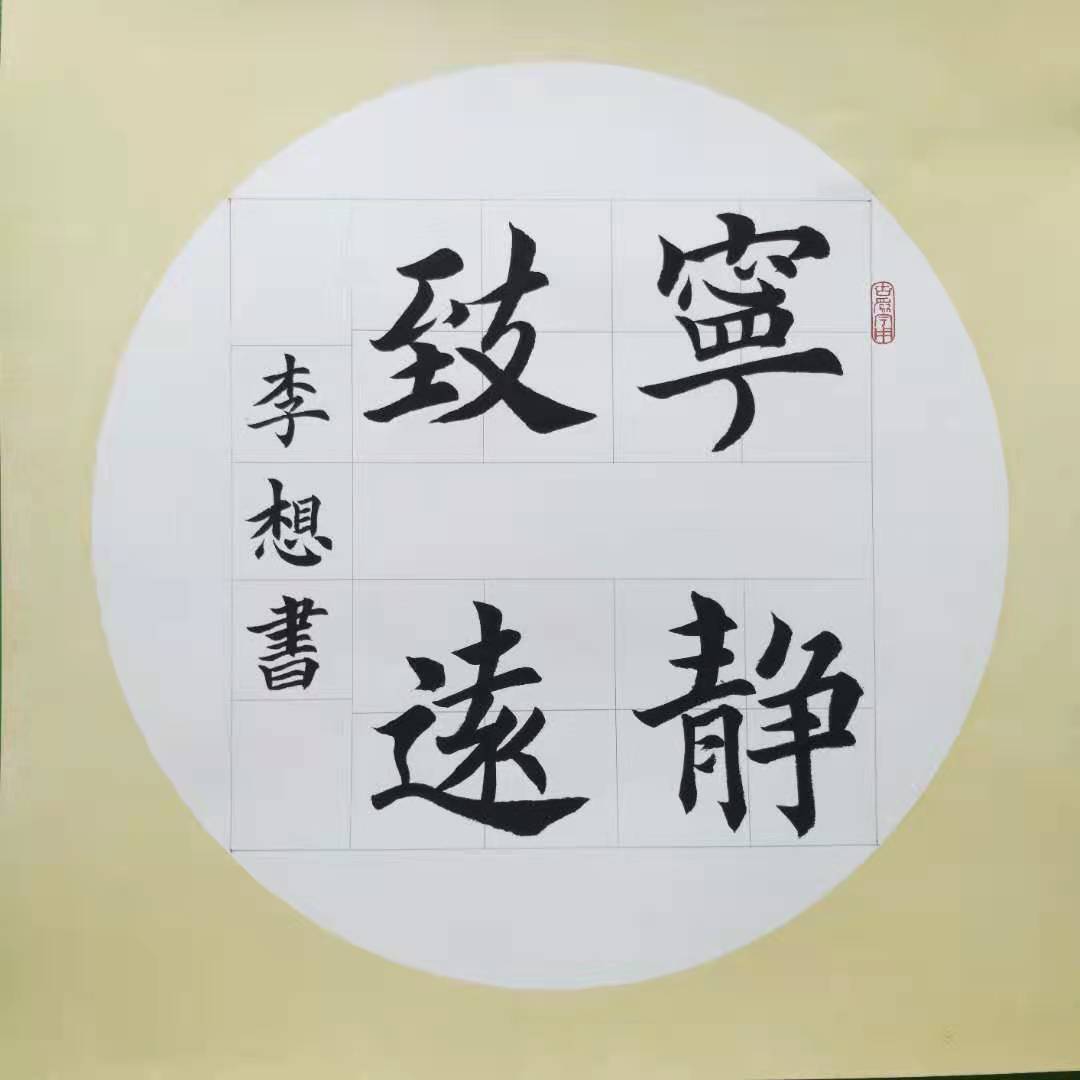 寧静
致遠
李想書